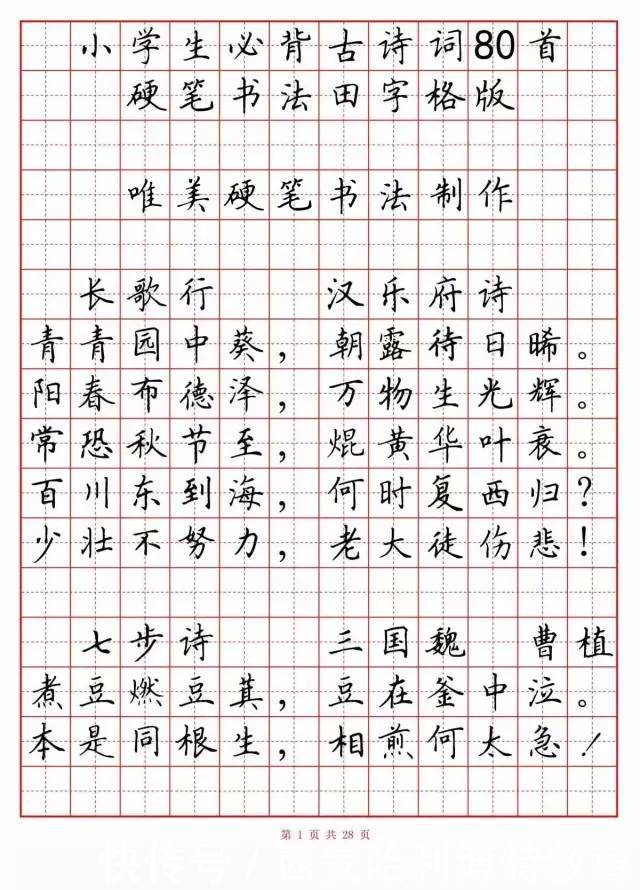 小学生必背古诗词80首
硬笔书法田字格版
唯美硬笔书法制作
长歌行 汉乐府诗
青青园中葵，朝露待日晞。
阳春布德泽，万物生光辉。
常恐秋节至，焜黄华叶衰。
百川东到海，何时复西归？
少壮不努力，老大徒伤悲！
七步诗 三国魏 曹植
煮豆燃豆萁，豆在釜中泣。
本是同根生，相煎何太急！
第 1 页 共 28 页
快传号／西安哈利博特教育